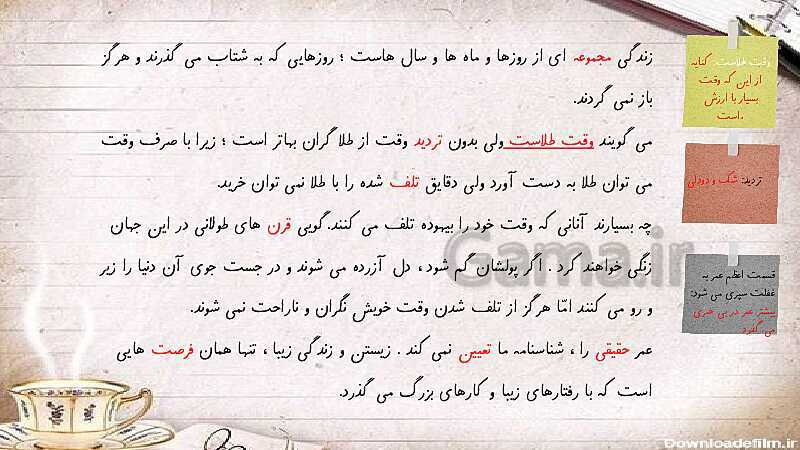 زندگی مجموعه ای از روزها و ماه ها و سال هاست ؛ روزهایی که به شتاب می گذرند و هرگز
باز نمی گردند.
می گویند وقت طلاست ولی بدون تردید وقت از طلا گران بهاتر است ؛ زیرا با صرف وقت
می توان طلا به دست آورد ولی دقایق تلف شده را با طلا نمی توان خرید.
چه بسیارند آنانی که وقت خود را بیهوده تلف می کنند.گویی قرن های طولانی در این جهان
زنگی خواهند کرد . اگر پولشان گم شود ، دل آزرده می شوند و در جست جوی آن دنیا را زیر
و رو می کنند امّا هرگز از تلف شدن وقت خویش نگران و ناراحت نمی شوند.
عمر حقیقی را ، شناسنامه ما تعیین نمی کند . زیستن و زندگی زیبا ، تنها همان فرصت هایی
است که با رفتارهای زیبا و کارهای بزرگ می گذرد.
وقت طلاست: کنایه
از این که وقت
بسیار با ارزش
است.
تردید: شک و دودلی
قسمت اعظم عمر به
غفلت سپری می شود:
بیشتر عمر در بی خبری
می گذرد
Gama.ir
Downloadefilm.ir